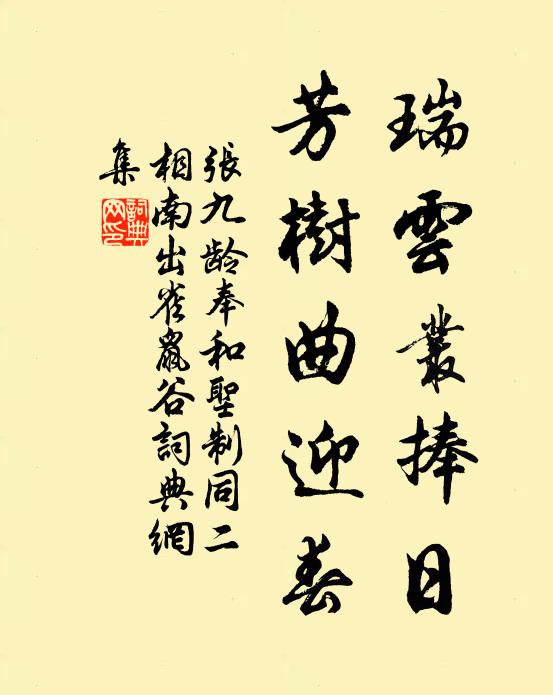 瑞雲叢捧日
芳樹曲迎春
張九龄奉和聖制同二
相南出雀鼠谷詞典網
集
詞典
网印